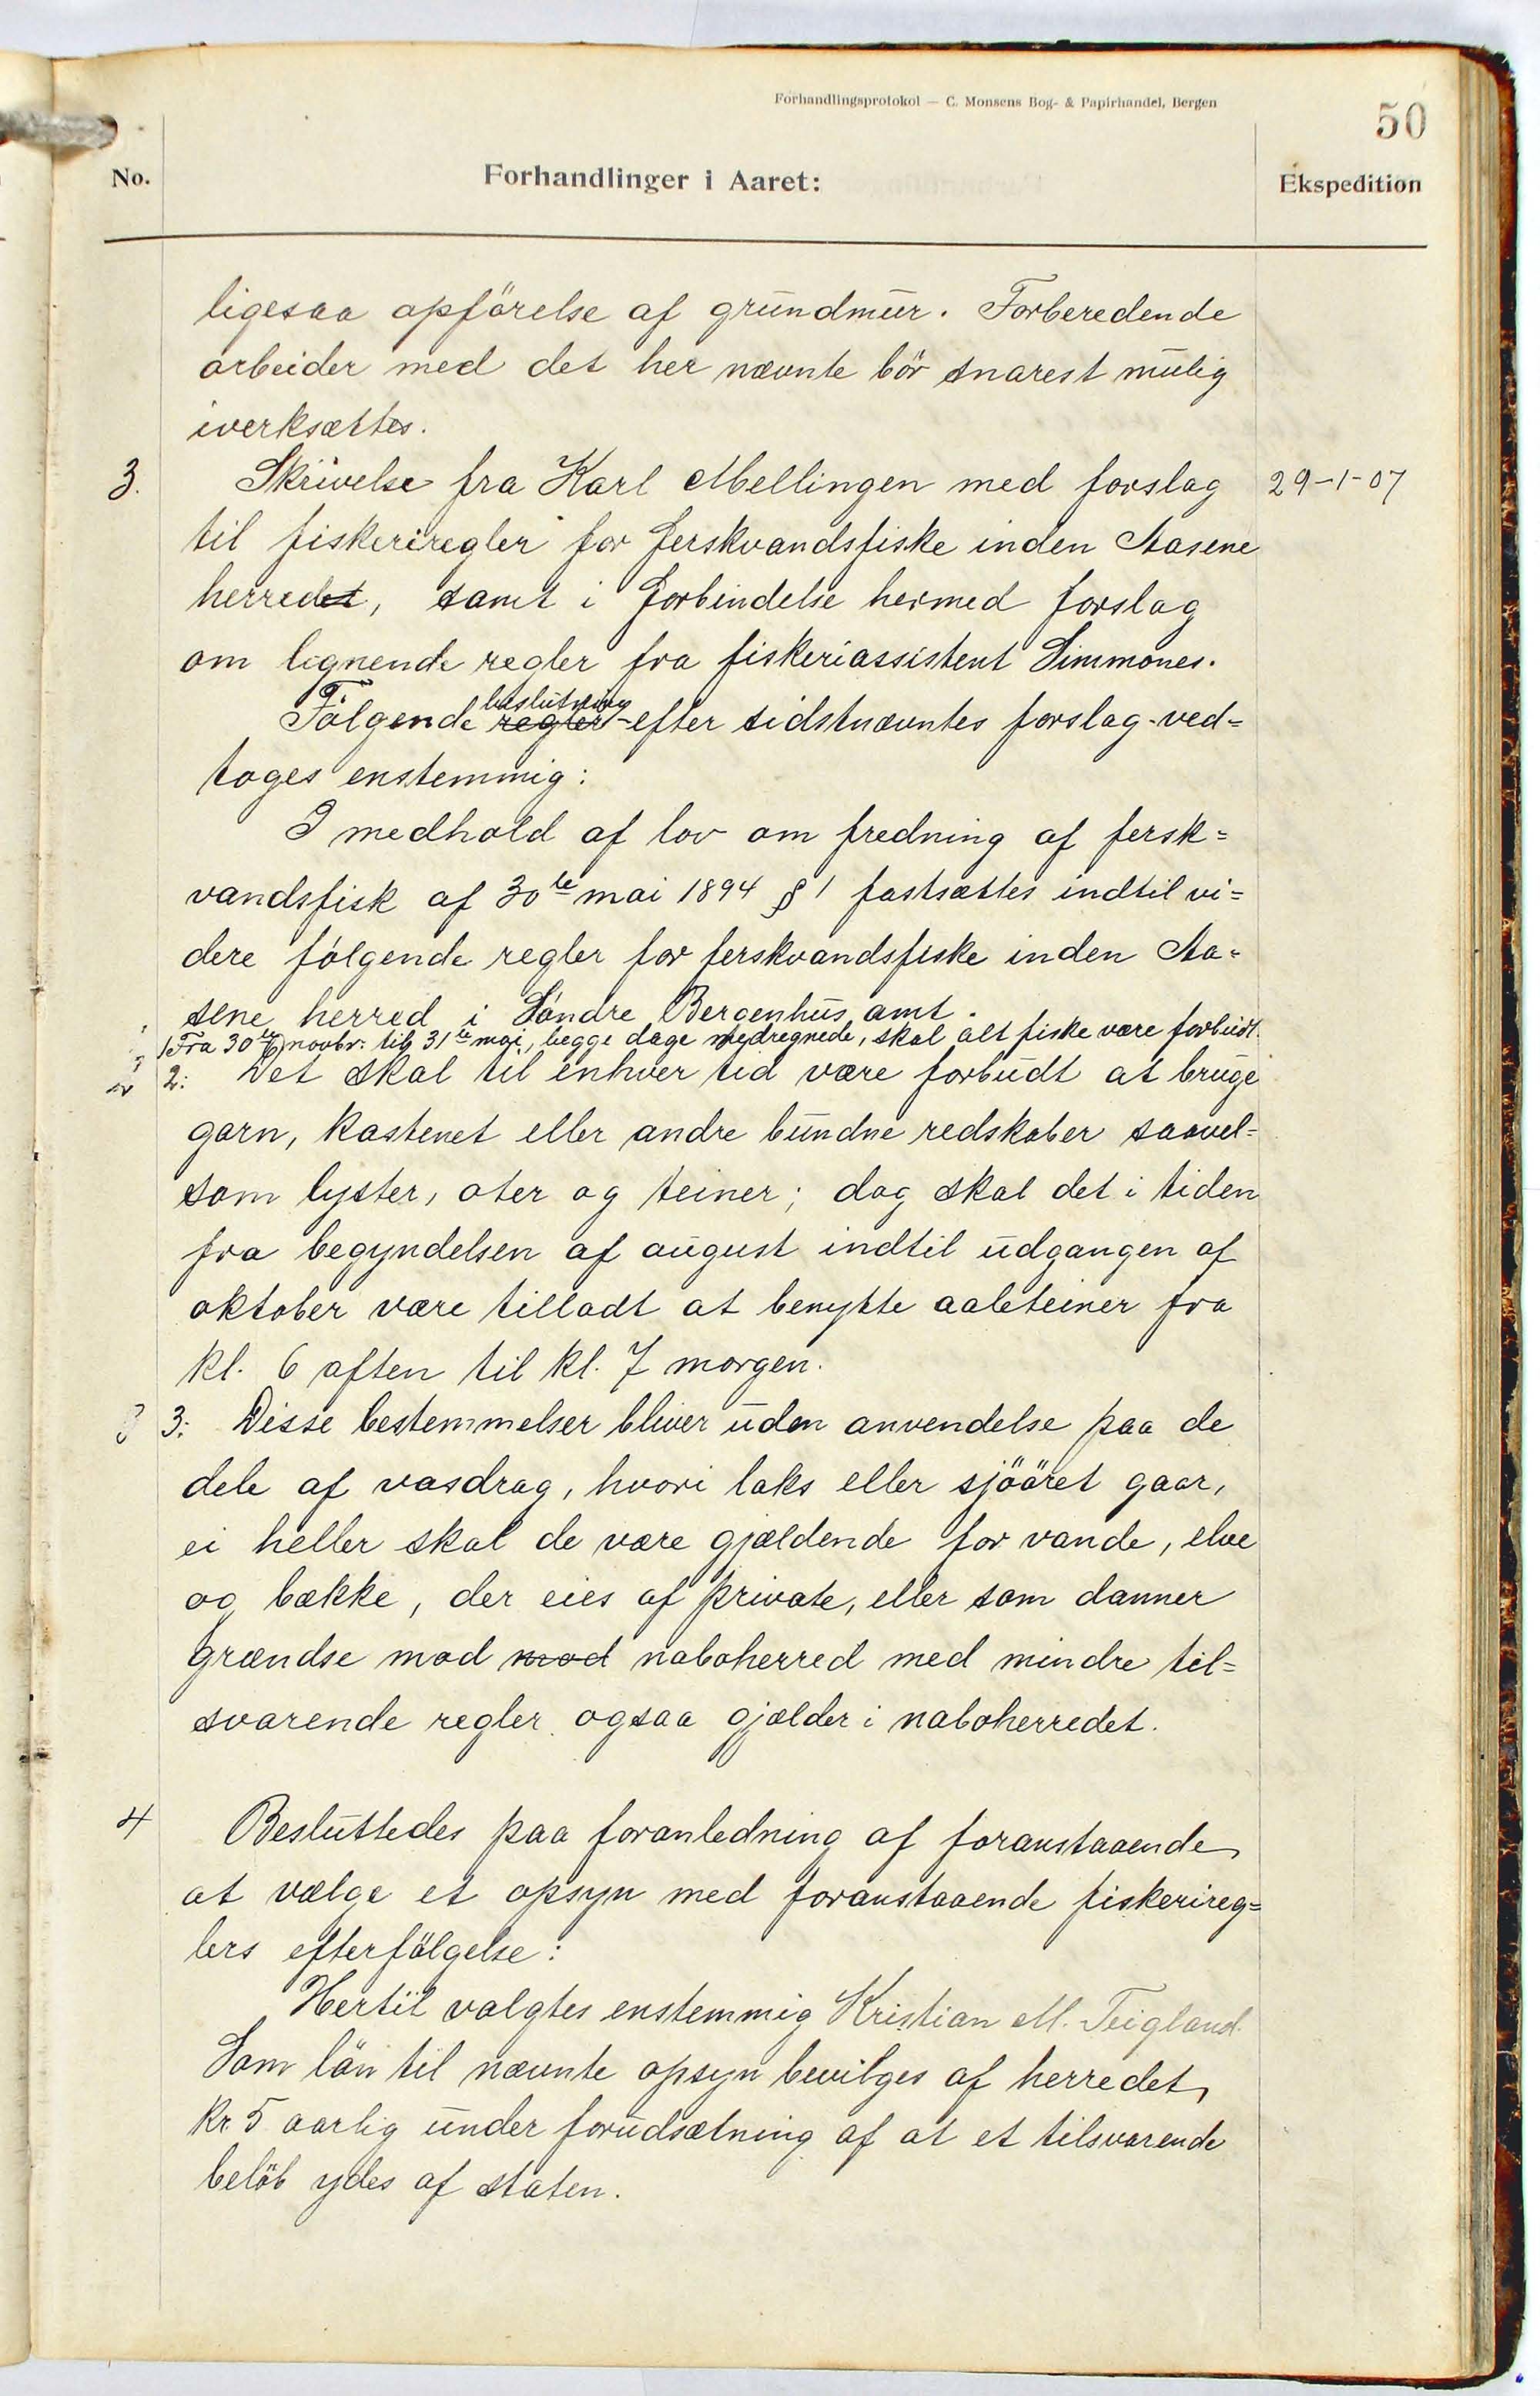 Forhandlingsprotokol — C. Monsens Bog- & Papirhandel, Bergen
50
No.
Forhandlinger i Aaret:
Ekspedition
ligesaa opförelse af grundmur. Forberedende
arbeider med det her nævnte bör snarest mulig
iverksættes.
3. Skrivelse fra Karl Mellingen med forslag 29-1-07
til fiskeriregler for ferskvandsfiske inden Aasene
herredet, samt i forbindelse hermed forslag
om lignende regler fra fiskeriassistent Simmones.
beslutning
Fölgende regler - efter sidstnævntes forslag - ved=
toges enstemmig:
I medhold af lov om fredning af fersk=
vandsfisk af 30te mai 1894 § 1 fastsættes indtil vi=
dere fölgende regler for ferskvandsfiske inden Aa=
sene herred i Söndre Bergenhus amt.
1 Fra 30te novbr. til 31te mai, begge dage medregnede, skal alt fiske være forbudt.
2: Det skal til enhver tid være forbudt at bruge
garn, kastenet eller andre bundne redskaber saavel=
som lyster, oter og teiner; dog skal det i tiden
fra begyndelsen af august indtil udgangen af
oktober være tilladt at benytte aaleteiner fra
kl. 6 aften til kl. 7 morgen.
3: Disse bestemmelser bliver uden anvendelse paa de
dele af vasdrag, hvori laks eller sjööret gaar,
ei heller skal de være gjældende for vande, elve
og bække, der eies af private, eller som danner
grændse mod mod naboherred med mindre til=
svarende regler ogsaa gjælder i naboherredet.
4 Besluttedes paa foranledning af foranstaaende
at vælge et opsyn med foranstaaende fiskerireg=
lers efterfölgelse:
Hertil valgtes enstemmig Kristian M. Teigland.
Som lön til nævnte opsyn bevilges af herredet
kr. 5 aarlig under forudsætning af at et tilsvarende
belöb ydes af staten.